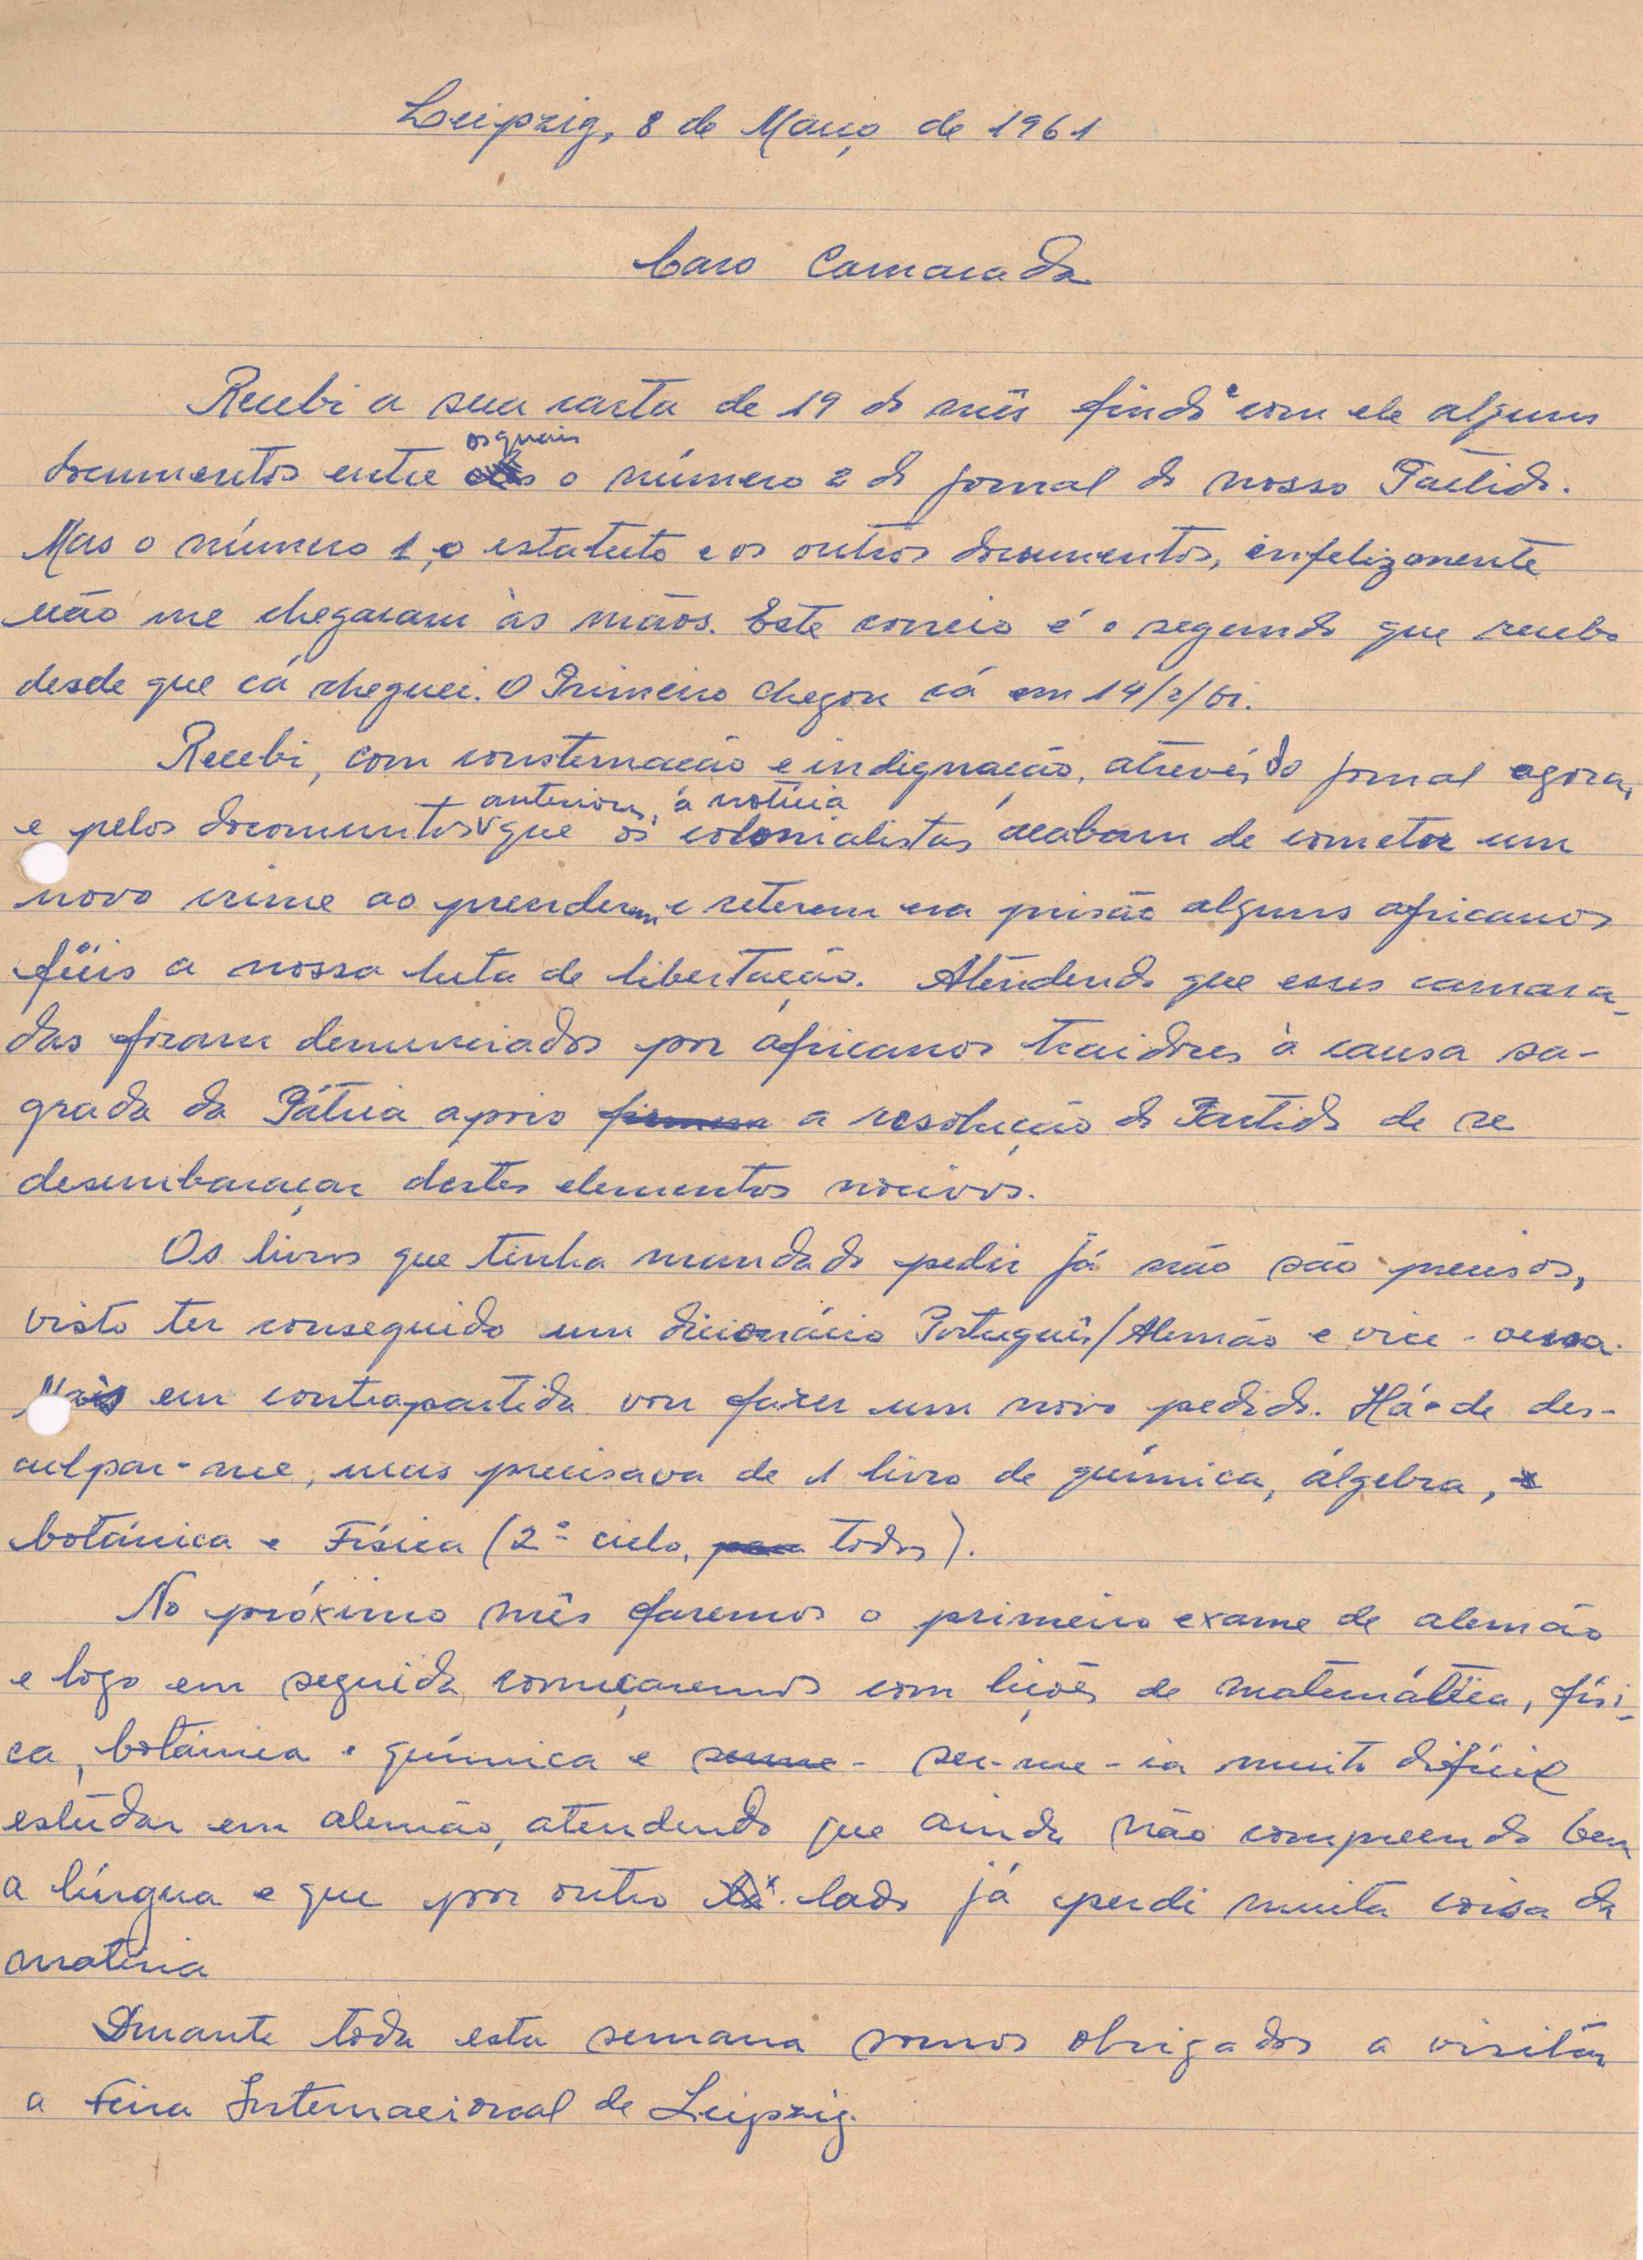 Leipzig, 8 de Março de 1961
Caro Camarada
Recebi a sua carta de 19 do mês findo e com ele alguns
documentos entre os quais o número 2 do jornal do nosso Partido.
Mas o número 1, o estatuto e os outros documentos, infelizmente
não me chegaram às mãos. Este correio é o segundo que recebo
desde que cá cheguei. O Primeiro chegou cá em 14/2/61.
Recebi, com consternação e indignação, através do jornal agora,
e pelos documentos anteriores, a notícia que os colonialistas acabam de cometer um
novo crime ao prenderem e reterem na prisão alguns africanos
fiéis a nossa luta de libertação. Atendendo que esses camara-
das foram denunciados por africanos traidores à causa sa-
grada da Pátria apoio a resolução do Partido de se
desembaraçar destes elementos nocivos.
Os livros que tinha mandado pedir já não são precisos,
visto ter conseguido um dicionário Português/Alemão e vice-versa.
Mas em contrapartida vou fazer um novo pedido. Há-de des-
culpar-me, mas precisava de 1 livro de química, álgebra,
botánica e Física (2º ciclo, todos).
No próximo mês faremos o primeiro exame de alemão
e logo em seguida começaremos com lições de matemática, físi-
ca, botánica e química e ser-me-ia muito difícil
estudar em alemão, atendendo que ainda não compreendo bem
a língua e que por outro lado já perdi muita coisa da
matéria
Durante toda esta semana somos obrigados a visitar
a Feira Internacional de Leipzig.